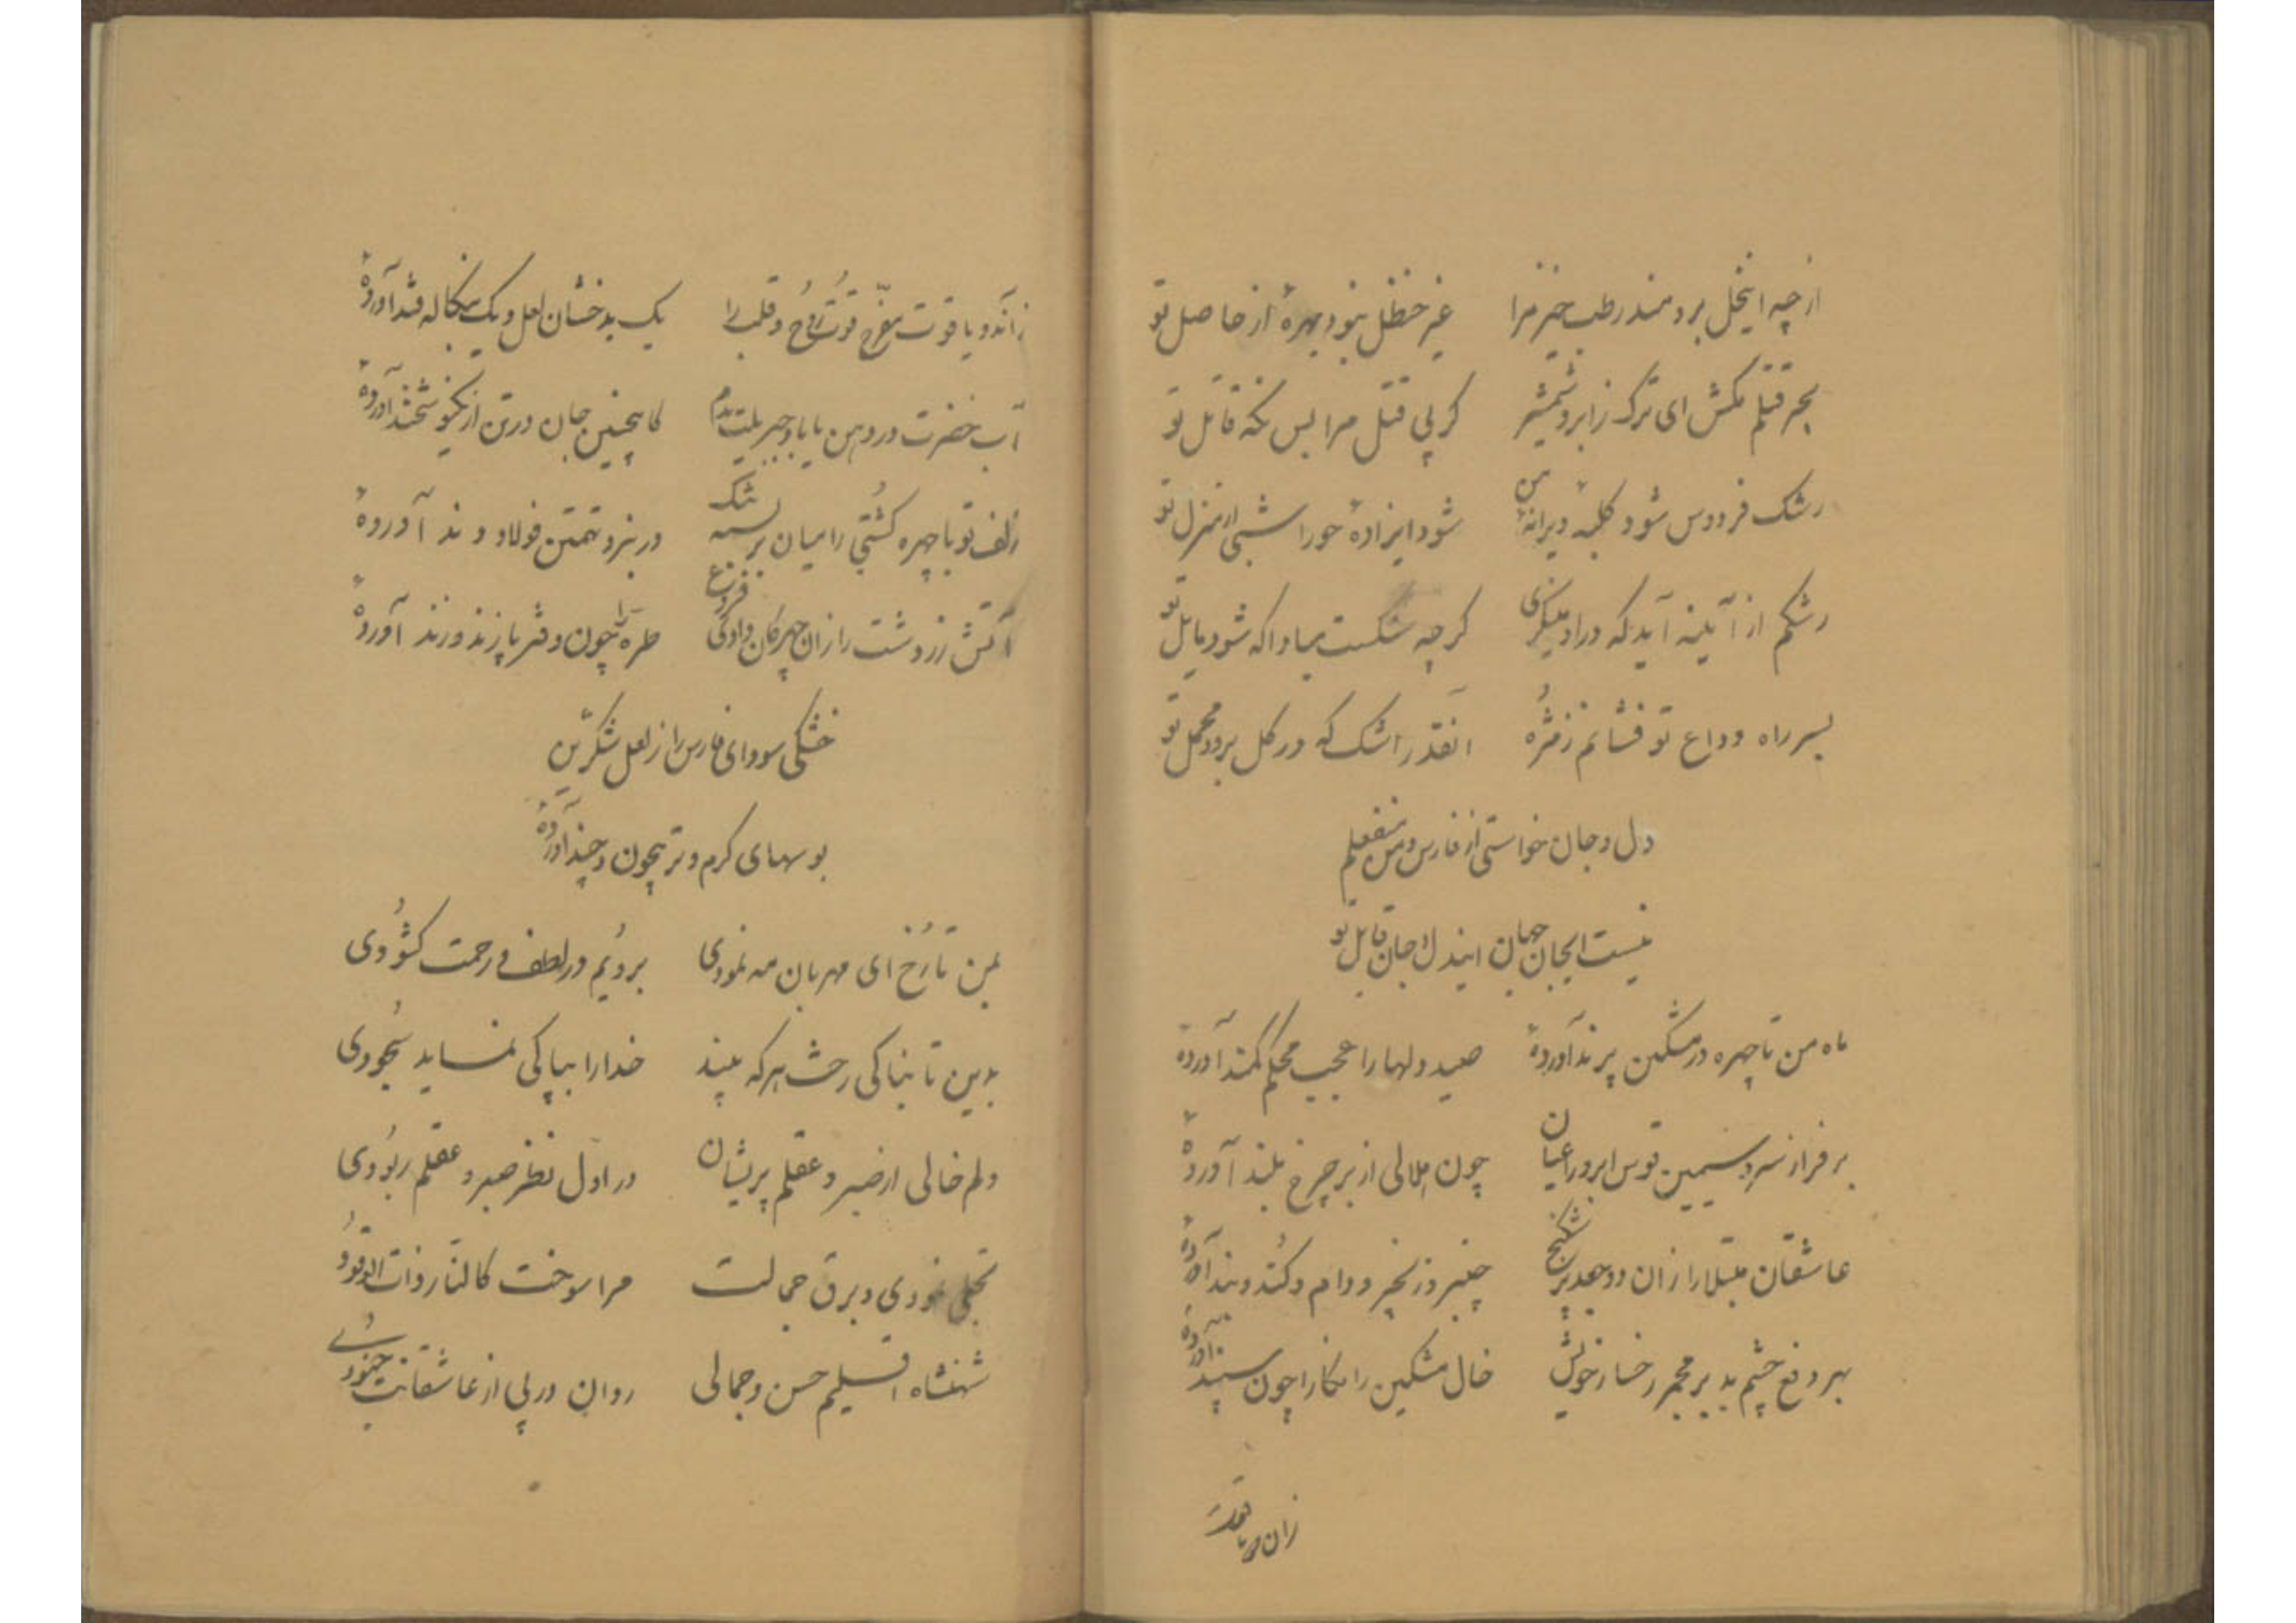 از چه ای نخل برومند رطب خیز مرا غیر حنظل نبود بهرهٔ از حاصل تو
بهر قتلم مکش ای ترک ز ابرو شمشیر کز پی قتل مرا بس نگه قاتل تو
رشک فردوس شود کلبهٔ ویرانهٔ من شود ایزادهٔ حورا شبی ار منزل تو
رشکم از آینه آید که در او مینگری گرچه شکست مبادا که شود مایل تو
بسر راه وداع تو فشانم ز مژه انقدر اشک که در گل برود محمل تو
دل و جان خواستی از فارس و من منفعلم
نیست ایجان جهان ایندل و جان قابل تو
ماه من تا چهره در مشکین پرند آوردهٔ صید دلها را عجب محکم کمند آوردهٔ
بر فراز سرو سیمین قوس ابرو را عیان چون هلالی از بر چرخ بلند آوردهٔ
عاشقان مبتلا را زان دو جعد پر شکنج چنبر و زنجیر و دام و کند و بند آوردهٔ
بهر دفع چشم بد بر مجمر رخسار خویش خال مشکین را نگارا چون سپند آوردهٔ
زان دو یاقوت
زآندو یاقوت مفرّح قوُت روُح و قلب را یک بدخشان لعل و یک بنگاله قند آوردهٔ
آب خضرت در دهن یا باد جبریلت بدم کاینچنین جان در تن از نیکو شخند آوردهٔ
زلف تو با چهره کُشتی را میان بر بسته شک در نبرد تهمتن فولاد وند آوردهٔ
آتش زردشت را زان چهر کان دادی فروغ طره را چون دفتر پازند و زند آوردهٔ
خشکی سودای فارس را ز لعل شکّرین
بوسهای گرم و تر بیچون و چند آوردهٔ
بمن تا رُخ ای مهربان مه نمودی برویُم در لطف و رحمت گشوُدی
بدین تابناکی رخت هر که بیند خدا را بپاکی نماید سجُودی
دلم خالی از صبر و عقلم پریشان در اول نظر صبر و عقلم ربوُدی
تجلی نمودی و برق جمالت مرا سوخت کالنّار ذات الوقوُد
شهنشاه اقلیم حسن و جمالی روان در پی از عاشقانت جنوُدی